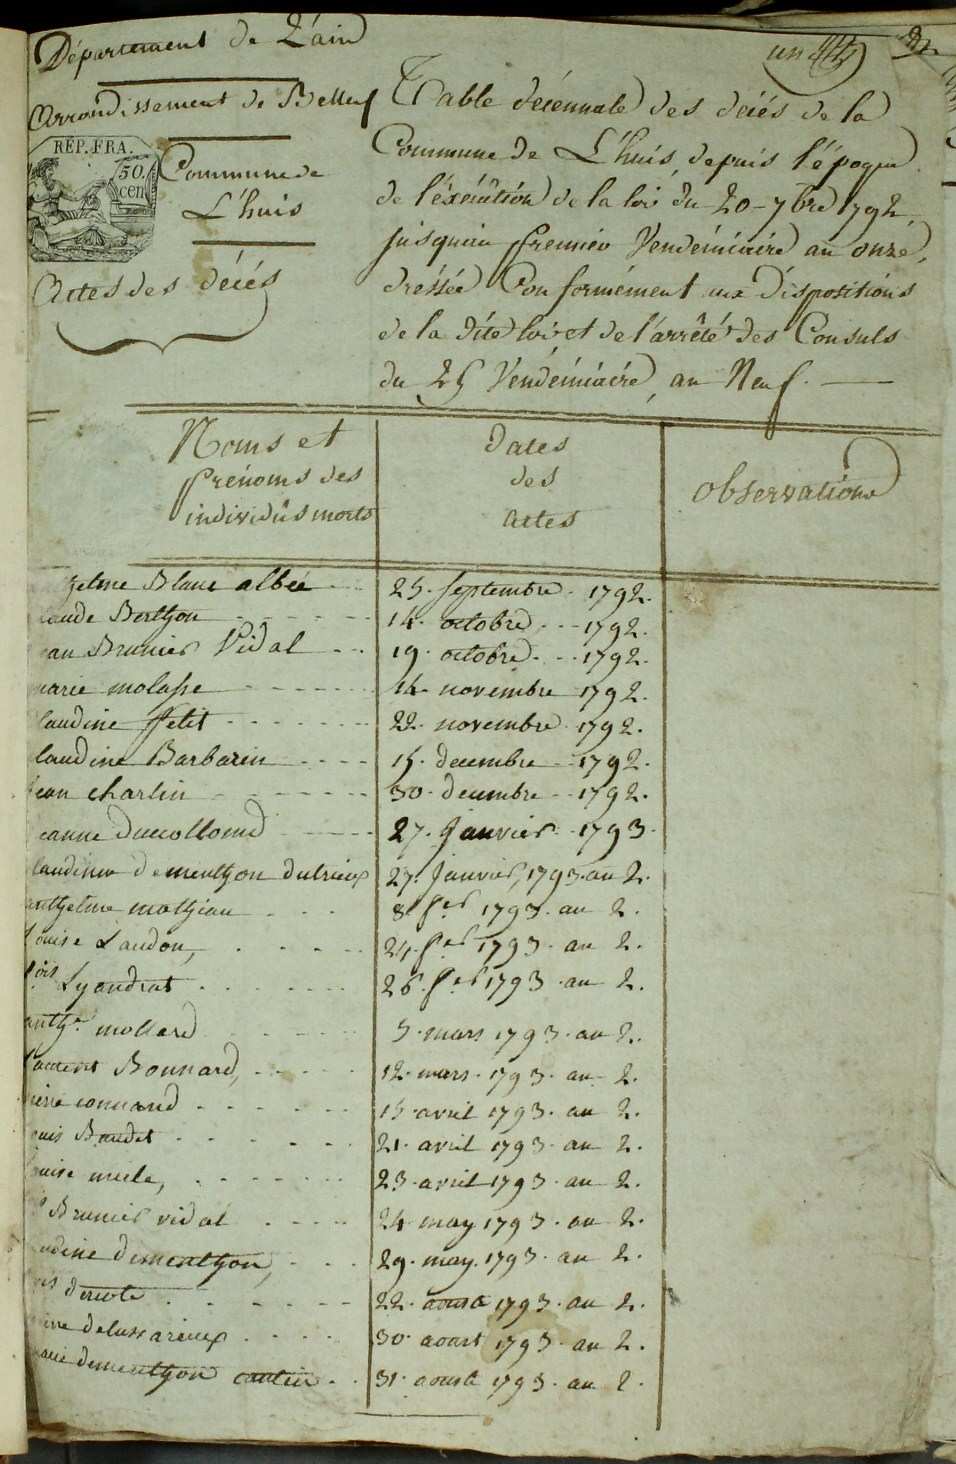 Département de L'ain
Arrondissement de Belley
REP. FRA.
50.
cen
Commune de
L'huis
Actes des décés
un
Table décennale des décés de la
Commune de L'huis, depuis l'époque
de l'éxécution de la loi du 20 - 7bre 1792,
jusqu'au premier Vendémiaire an onze,
dréssée Conformément aux dispositions
de la dite loi et de l'arrêté des Consuls
du 25 Vendémiaire, an Neuf.
Noms et
prénoms des
individûs morts
Dates
des
actes
observations
zelme Blanc albée 25. septembre. 1792.
laude Berthon 14. octobre 1792.
ean Brunier Vidal 19. octobre. 1792.
marie molasse 14. novembre 1792.
laudine petit 22. novembre 1792.
laudine Barbarin 15. decembre 1792.
jean charlin 30. decembre 1792.
eanne ducollomd 27. Janvier. 1793.
laudine dementhon dutrieux 27. Janvier, 1793. an 2.
anthelme mathieu 8 fer 1793. an 2.
louise Landon, 24. fer 1793. an 2.
fois Lyandrat 26. fer 1793. an 2.
anthe. mollard 5. mars 1793. an 2.
Bonnard, 12. mars. 1793. an 2.
connard 15. avril 1793. an 2.
ouis Baudet 21. avril 1793. an 2.
ouise 23. avril 1793. an 2.
Brunier vidal 24. may 1793. an 2.
audine dementhon, 29. may. 1793. an 2.
22. aoust 1793. an 2.
30. aoust 1793. an 2.
marie dementhon 31. aoust 1793. an 2.